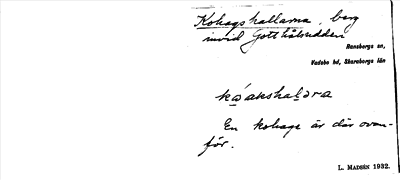 Kohagshallarna, berg
invid Gotthålsudden
Ransbergs sn,
Vadsbo hd, Skaraborgs län
kɷ́akshaḷəra
En kohage är där ovan-
för.
L. MADSÉN 1932.